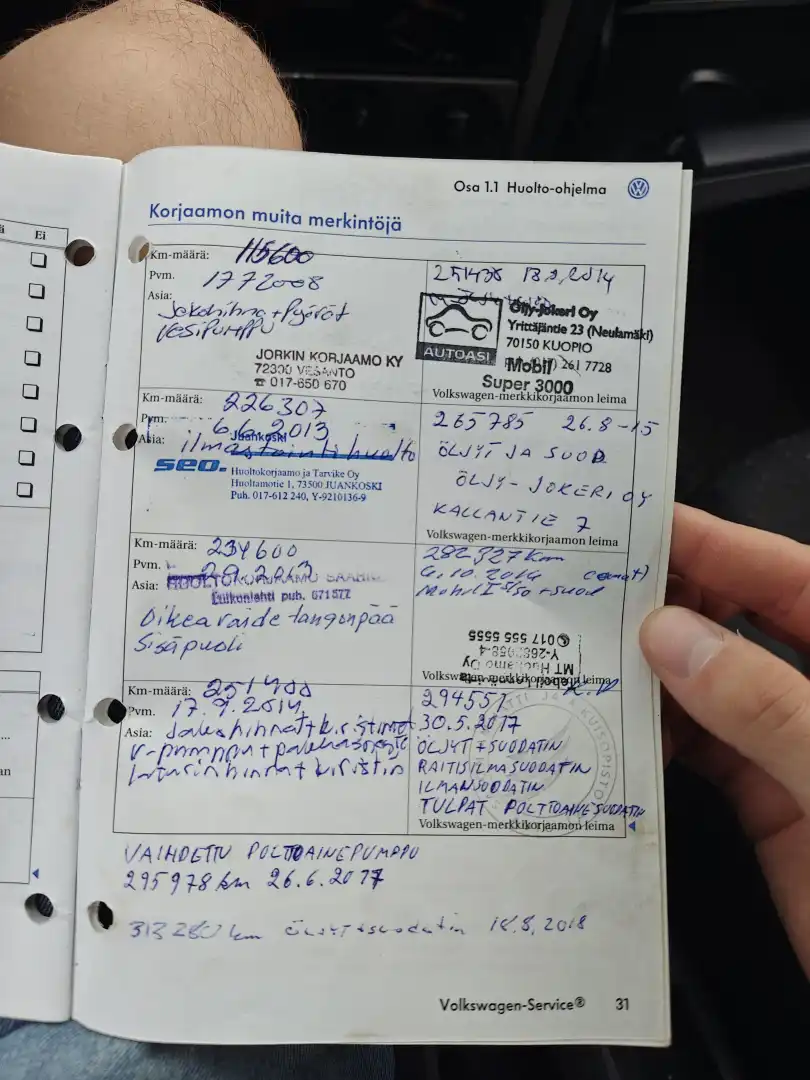 Ei
Osa 1.1 Huolto-ohjelma
Korjaamon muita merkintöjä
Km-määrä: 115600
Pvm. 1772008
Asia: Jakohihna + Pyörät
VESIPUMPPU
JORKIN KORJAAMO KY
72300 VESANTO
☎ 017-650 670
251438 18.9.2014
Öljy-Jokeri Oy
Yrittäjäntie 23 (Neulamäki)
70150 KUOPIO
261 7728
AUTOASI
Mobil
Super 3000
Volkswagen-merkkikorjaamon leima
Km-määrä: 226307
Pvm. 6.6.2013
Asia: ilmastointihuolto
Juankoski
seo.
Huoltokorjaamo ja Tarvike Oy
Huoltamotie 1, 73500 JUANKOSKI
Puh. 017-612 240, Y-9210136-9
265785 26.8-15
ÖLJYT JA SUOD
ÖLJY-JOKERI OY
KALLANTIE 7
Volkswagen-merkkikorjaamon leima
Km-määrä: 234600
Pvm.
Asia:
Luikonlahti puh. 671577
Oikea raidetangonpää
Sisäpuoli
282327 km
Mobil 1 5/50 + suod
MT Huoltamo Oy
✆017 555 5555
Volkswagen-merkkikorjaamon leima
Km-määrä: 251400
Pvm. 17.9.2014
Asia: Jakohihnat + kiristimet
V-pumppu +
laturin hinnat kiristin
294557
30.5.2017
ÖLJYT + SUODATIN
RAITISILMASUODATIN
ILMANSUODATIN
TULPAT POLTTOAINESUODATIN
Volkswagen-merkkikorjaamon leima
VAIHDETTU POLTTOAINEPUMPPU
295978 km 26.6.2017
313280 km Öljyt + suodatin 18.8.2018
Volkswagen-Service® 31